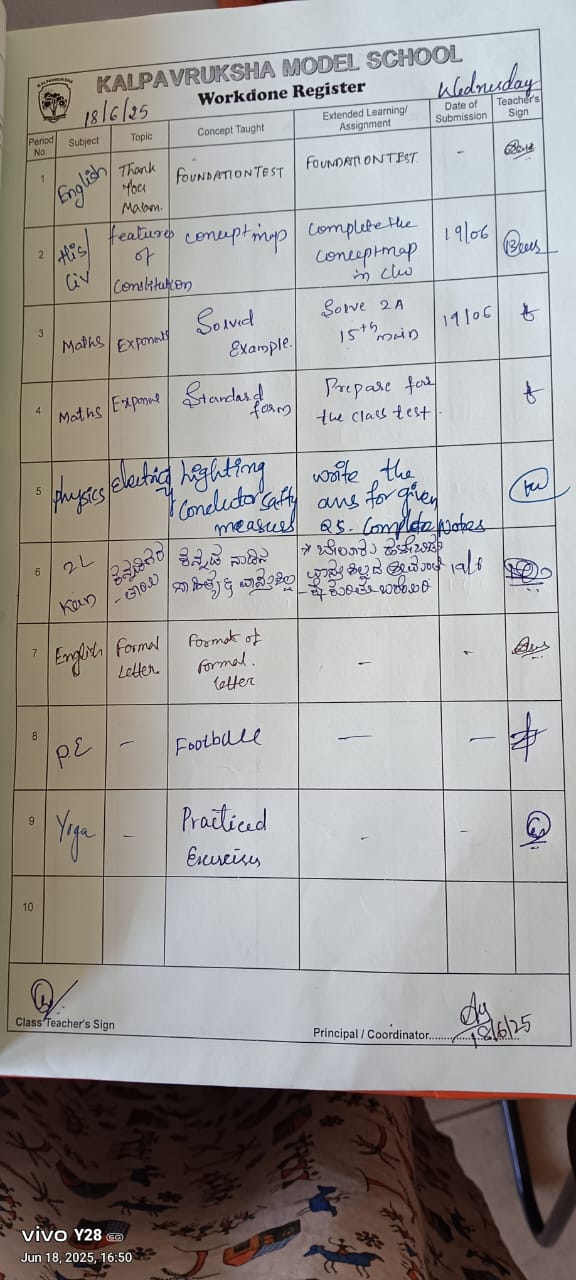 KALPAVRUKSHA
KALPAVRUKSHA MODEL SCHOOL
18/6/25
Workdone Register
Wednesday
Period No.
Subject
Topic
Concept Taught
Extended Learning/ Assignment
Date of Submission
Teacher's Sign
1
English
Thank
You
Ma'am.
FOUNDATION TEST
FOUNDATION TEST
-
2
His/
Civ
features
of
Constitution
concept map
Complete the
concept map
in cw
19/06
3
Maths
Exponents
Solved
Example.
Solve 2A
15th main
19/06
4
Maths
Standard
form
Prepare for
the class test.
5
Physics
electricity
Lighting
conductor safty
measures
write the
ans for given
Qs. Complete Notes
6
2L
Kan
ಕನ್ನಡ ನಾಡಿನ
19/6
7
English
Formal
Letter
Format of
formal.
letter
-
-
8
P.E
-
Football
-
-
9
Yoga
-
Practiced
Exercises
-
-
10
Class Teacher's Sign
Principal / Coordinator
18/6/25
vivo Y28 5G
Jun 18, 2025, 16:50